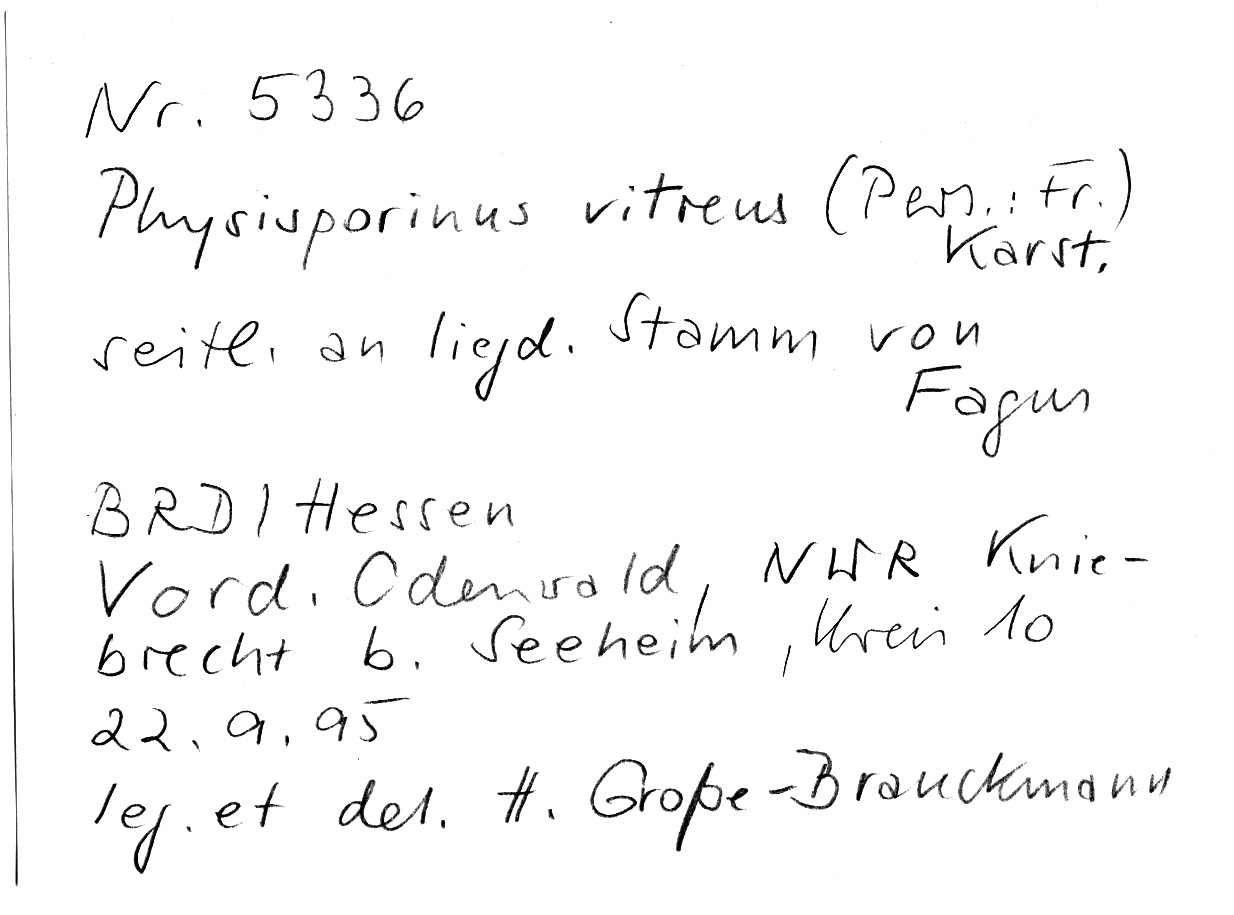 Nr. 5336
Physisporinus vitreus (Pers.: Fr.)
Karst.
seitl. an liegd. Stamm von
Fagus
BRD / Hessen
Vord. Odenwald, NWR Knie-
brecht b. Seeheim, Kreis 10
22. 9. 95
leg. et det. H. Große-Brauckmann